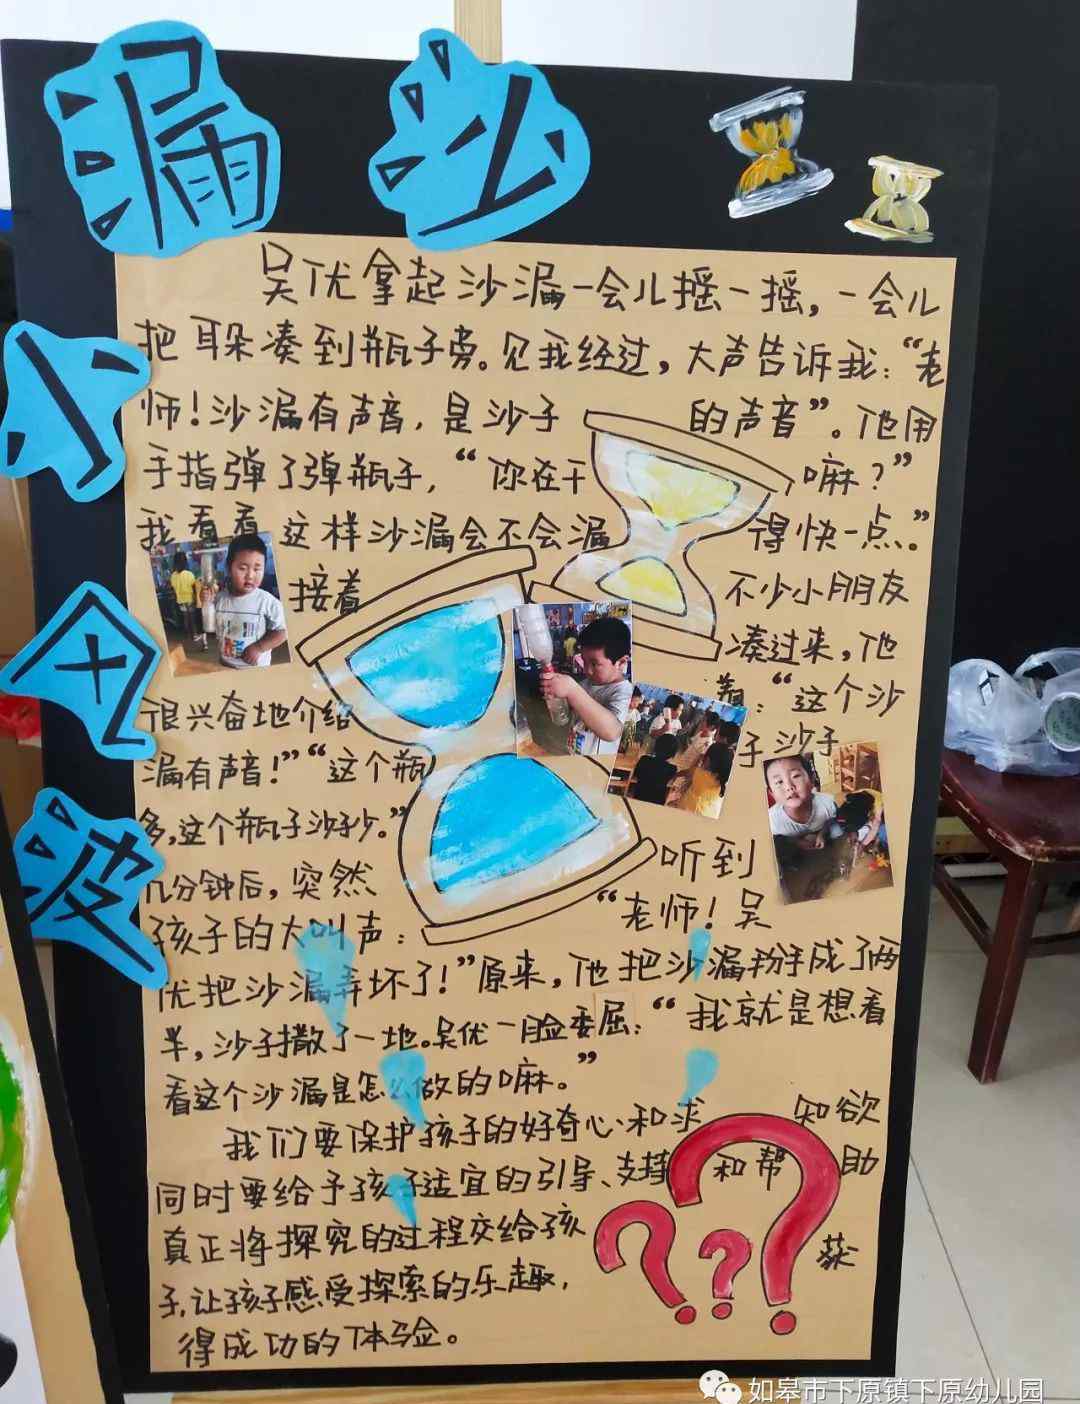 漏沙
小风波
吴优拿起沙漏一会儿摇一摇，一会儿
把耳朵凑到瓶子旁。见我经过，大声告诉我：“老
师！沙漏有声音，是沙子的声音”。他用
手指弹了弹瓶子，“你在干嘛？”
我看看这样沙漏会不会漏得快一点。”
接着不少小朋友
凑过来，他
很兴奋地介绍：“这个沙
漏有声音！”“这个瓶子沙子
多，这个瓶子沙子少。”
几分钟后，突然听到
孩子的大叫声：“老师！吴
优把沙漏弄坏了！”原来，他把沙漏掰成了两
半，沙子撒了一地。吴优一脸委屈：“我就是想看
看这个沙漏是怎么做的嘛。”
我们要保护孩子的好奇心、和求知欲
同时要给予孩子适宜的引导、支持和帮助
真正将探究的过程交给孩
子，让孩子感受探索的乐趣，获
得成功的体验。
如皋市下原镇下原幼儿园